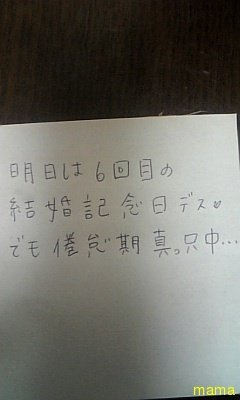 明日は6回目の
結婚記念日デス♥
でも倦怠期真っ只中…
mama